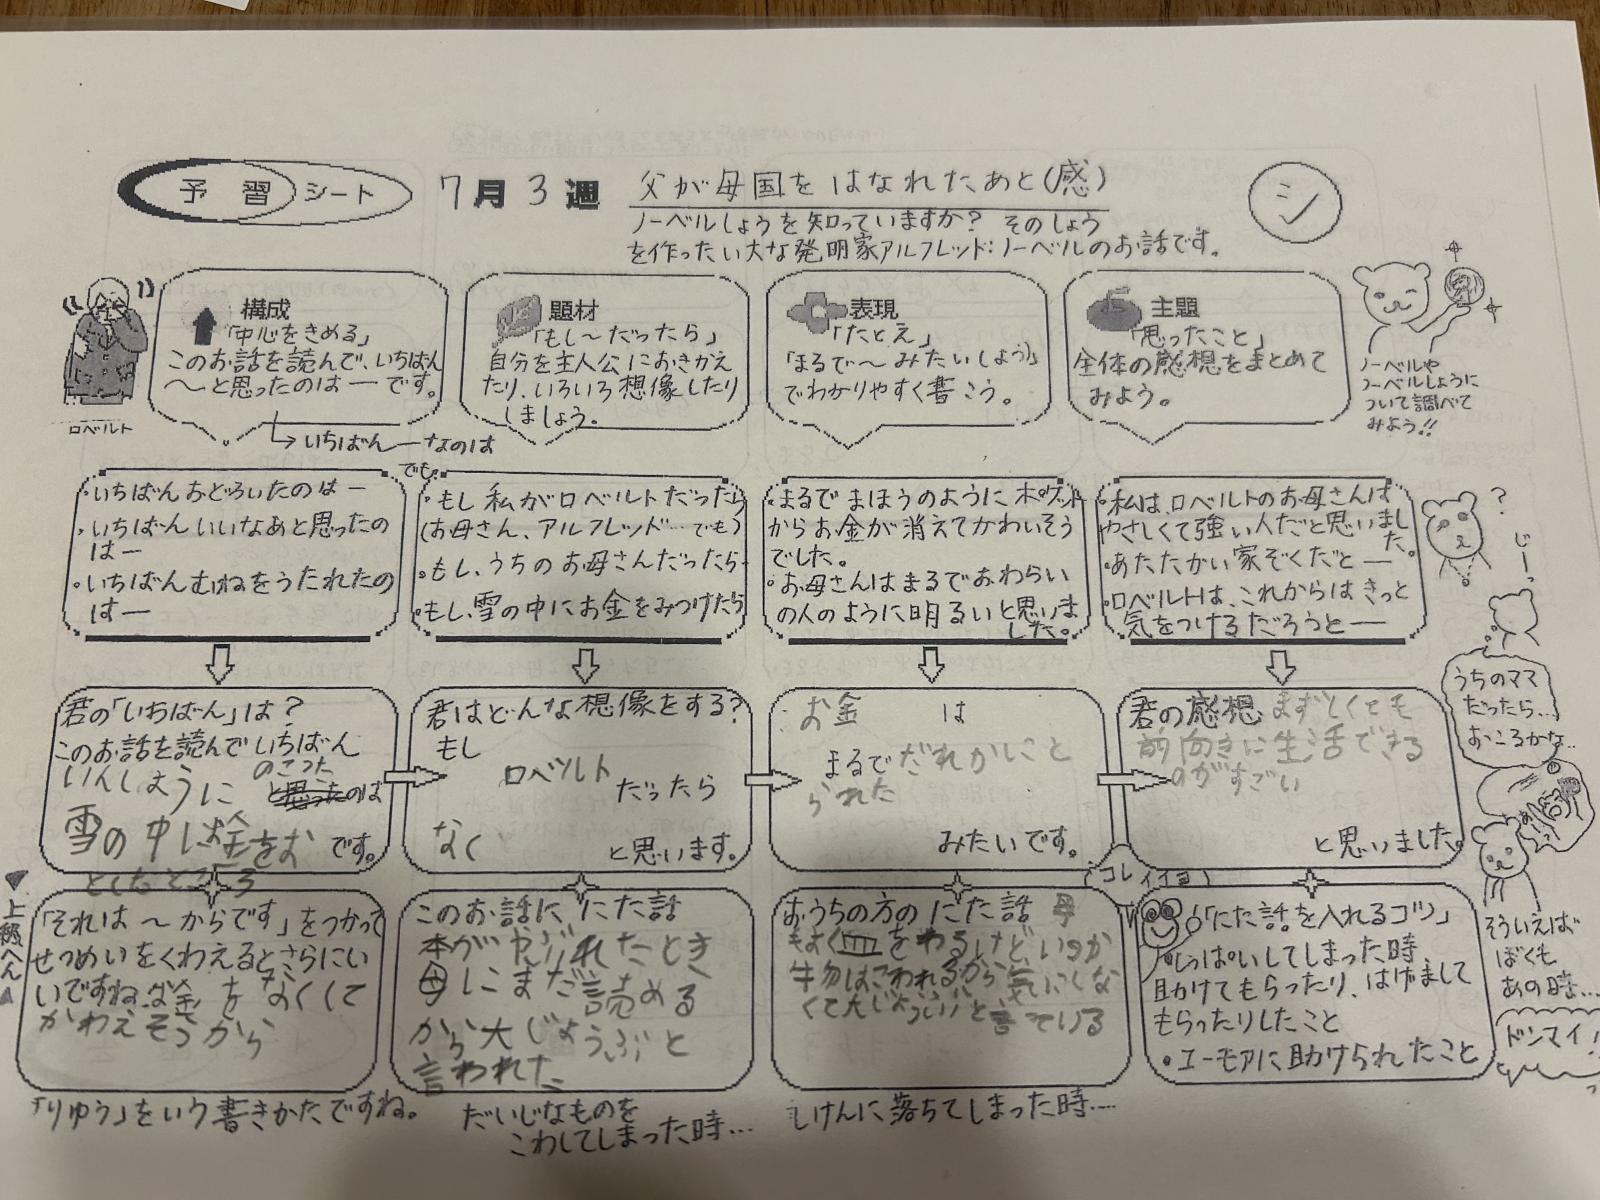 予習シート 7月3週 父が母国をはなれたあと(感)
シ
ノーベルしょうを知っていますか? そのしょう
を作ったい大な発明家アルフレッド:ノーベルのお話です。
ロベルト
構成
「中心をきめる」
このお話を読んで、いちばん
〜と思ったのは ― です。
→いちばん―なのは
題材
「もし〜だったら」
自分を主人公におきかえ
たり、いろいろ想像したり
しましょう。
表現
「たとえ」
「まるで〜みたいしょう」
でわかりやすく書こう。
主題
「思ったこと」
全体の感想をまとめて
みよう。
ノーベルや
ノーベルしょうに
ついて調べて
みよう!!
・いちばんおどろいたのは―
・いちばんいいなあと思ったの
は―
・いちばんむねをうたれたの
は―
でも
・もし私がロベルトだったら
(お母さん、アルフレッド…でも)
・もし、うちのお母さんだったら
・もし、雪の中にお金をみつけたら
・まるでまほうのようにポケット
からお金が消えてかわいそう
でした。
・お母さんはまるでおわらい
の人のように明るいと思いま
した。
・私は、ロベルトのお母さんは
やさしくて強い人だと思いまし
た。
・あたたかい家ぞくだと―
・ロベルトは、これからはきっと
気をつけるだろうと―
?
じーっ
うちのママ
だったら…
おこるかな…
君の「いちばん」は?
このお話を読んでいちばん
いんしょうに のこった
と思ったのは
雪の中にお金をお です。
としたところ
君はどんな想像をする?
もし
ロベルト だったら
なく と思います。
お金 は
まるでだれかにと
られた
みたいです。
君の感想 まずしくても
前向きに生活できる
のがすごい
と思いました。
コレイイヨ
上級へん
「それは〜からです」をつかって
せつめいをくわえるとさらにい
いですね。お金をなくして
かわえそうから
「りゆう」をいう書きかたですね。
このお話に にた話
本がやぶれたとき
母にまだ読める
から大じょうぶと
言われた
だいじなものを
こわしてしまった時…
おうちの方のにた話 母
もよく皿をわるけどいつか
牛物はこわれるから気にしな
くて大じょうぶと言っている
しけんに落ちてしまった時…
「にた話を入れるコツ」
・しっぱいしてしまった時
助けてもらったり、はげまして
もらったりしたこと
・ユーモアに助けられたこと
そういえば
ぼくも
あの時…
ドンマイ!